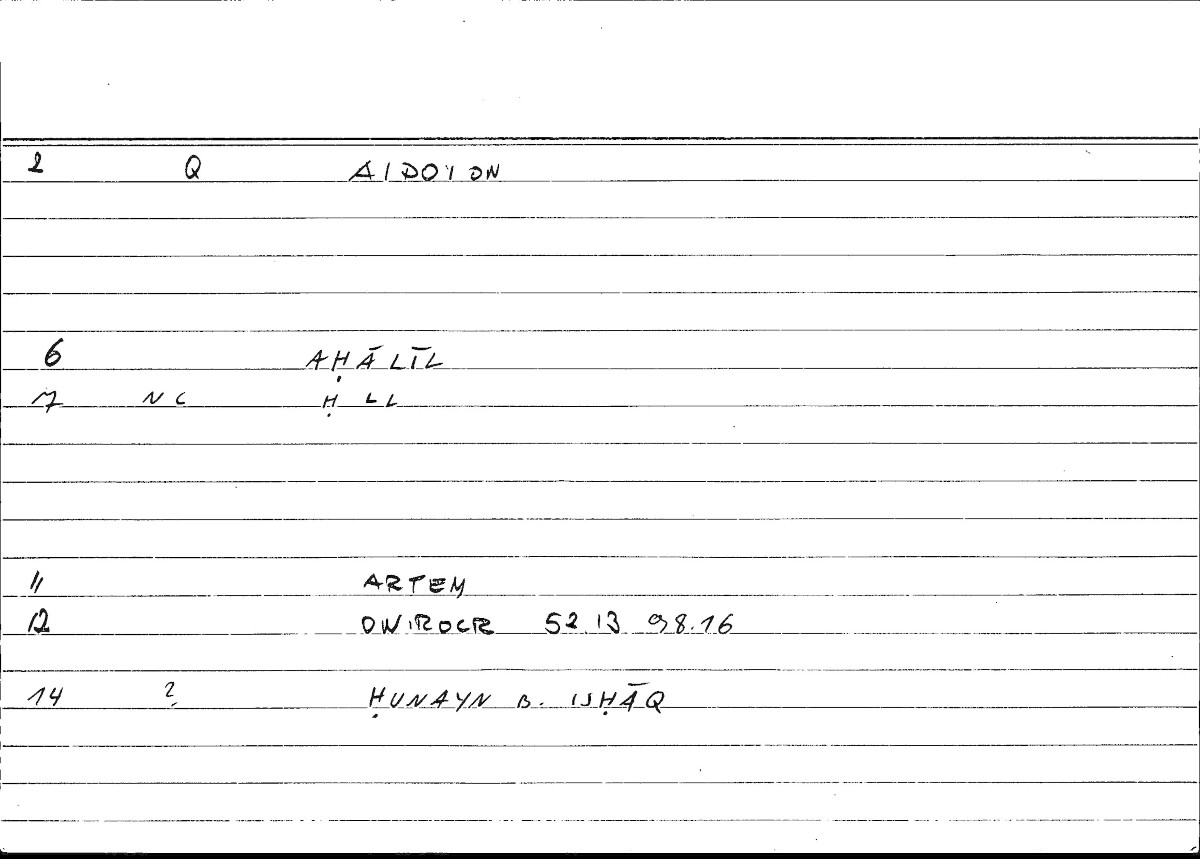 2 Q AIDOION
6 AḤĀLĪL
7 NC Ḥ LL
11 ARTEM
12 ONIROCR 52.13 98.16
14 ? ḤUNAYN B. ISḤĀQ